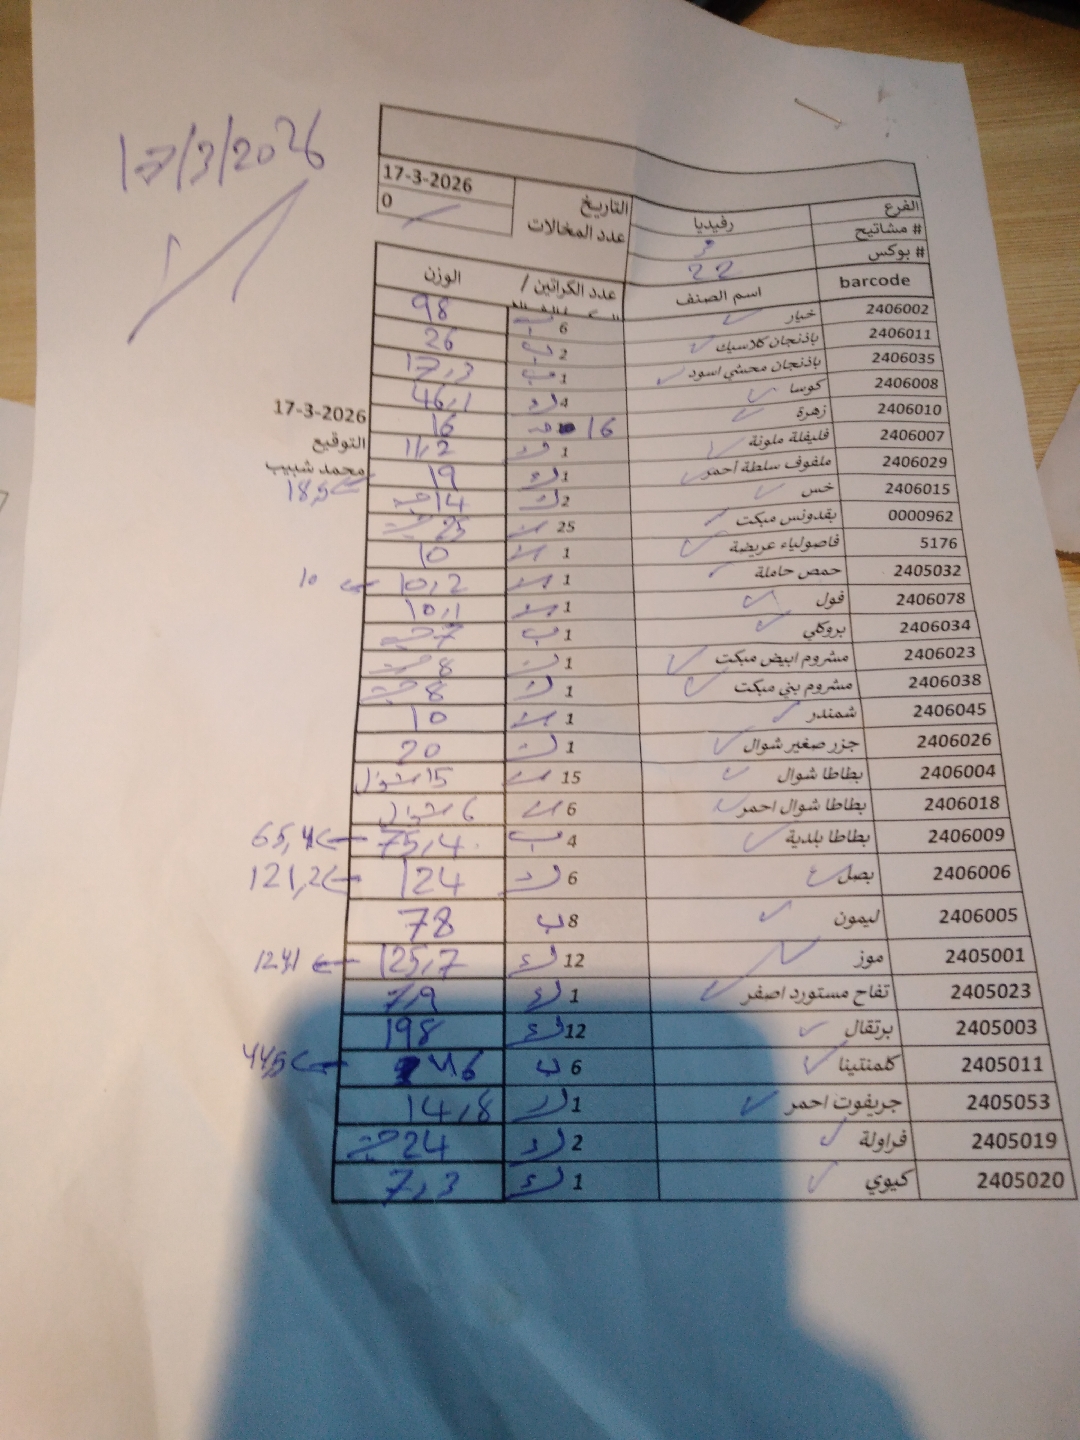 17/3/2026
الفرع رفيديا التاريخ 17-3-2026
# مشاتيح 3 عدد المخالات 0
# بوكس 22
barcode اسم الصنف عدد الكراتين / الوزن
2406002 خيار 6 ب 98
2406011 باذنجان كلاسيك 2 ب 26
2406035 باذنجان محشي اسود 1 ب 17,3
2406008 كوسا 4 ك 46,1
2406010 زهرة 16 16
2406007 فليفلة ملونة 1 ك 11,2
2406029 ملفوف سلطة احمر 1 ك 19 18,5
2406015 خس 2 ك 14 حبة
0000962 بقدونس مبكت 25 25 حبة
5176 فاصولياء عريضة 1 10
2405032 حمص حاملة 1 10,2 10
2406078 فول 1 10,1
2406034 بروكلي 1 ب 7 حبة
2406023 مشروم ابيض مبكت 1 ك 8 حبة
2406038 مشروم بني مبكت 1 ك 8 حبة
2406045 شمندر 1 10
2406026 جزر صغير شوال 1 20
2406004 بطاطا شوال 15 15 شوال
2406018 بطاطا شوال احمر 6 6 شوال
2406009 بطاطا بلدية 4 ب 75,4 65,4
2406006 بصل 6 ك 124 121,2
2406005 ليمون 8 ب 78
2405001 موز 12 ك 125,7 124,1
2405023 تفاح مستورد اصفر 1 ك 7,9
2405003 برتقال 12 ك 198
2405011 كلمنتينا 6 ب 46 44,5
2405053 جريفوت احمر 1 ك 14,8
2405019 فراولة 2 ك 24 حبة
2405020 كيوي 1 ك 7,3
17-3-2026
التوقيع
محمد شبيب